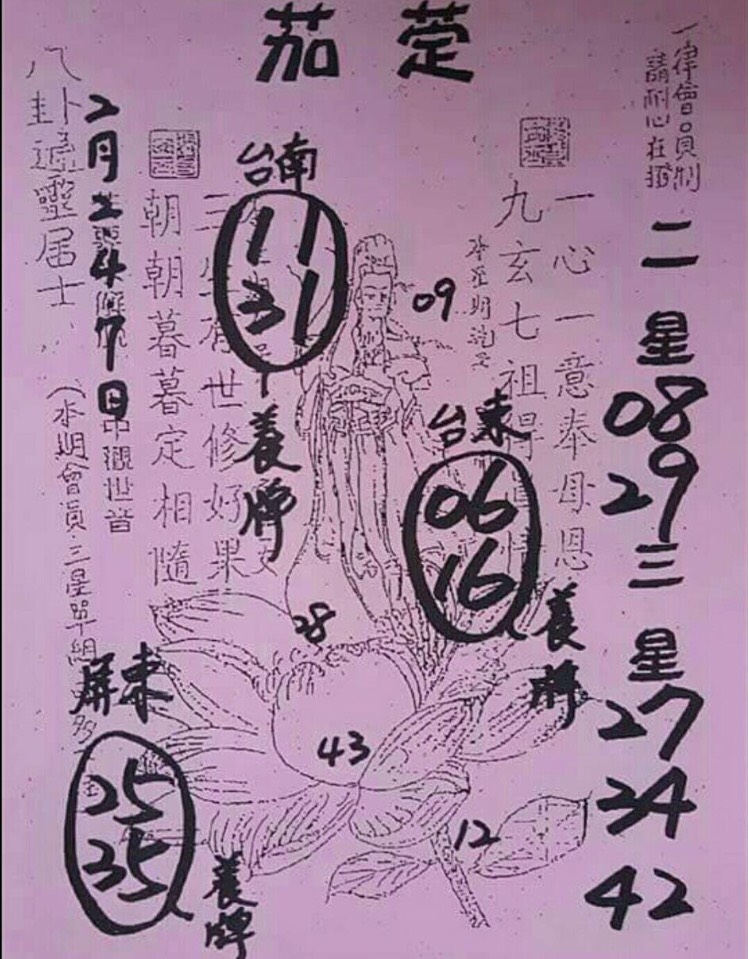 茄萣
一律會員制
請耐心在撥
二星
08
29
三星
27
34
42
一心一意奉母恩
九玄七祖
台南
11
31
養牌
09
台東
06
16
養牌
朝朝暮暮定相隨
世修好果
八卦
居士
2月
7日
觀世音
(本期會員.三星單組
屏東
25
35
養牌
28
43
12